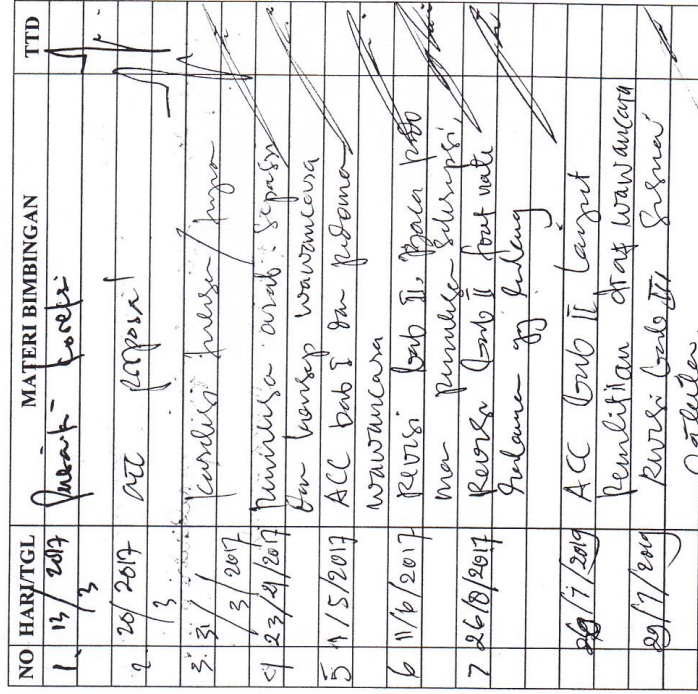 NO HARI/TGL MATERI BIMBINGAN TTD
1. 13/3 2017
2. 20/3 2017 acc proposal
3. 31/3/2017
4 23/4/2017 arab
dan konsep wawancara
5 1/5/2017 ACC bab I dan pedoman
wawancara
6 11/6/2017 Revisi bab II, Baca pedo
man penulisan Skripsi,
7 26/8/2017 Revisi bab II foot note
halaman yg kurang
26/7/2019 ACC bab II Lanjut
Penelitian draf wawancara
29/7/2019 Revisi bab III Sesuai